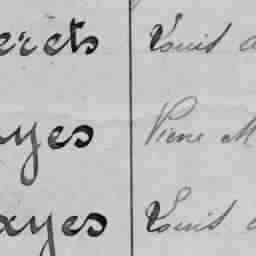 erets Louis
yes Pierre M
ayes Louis